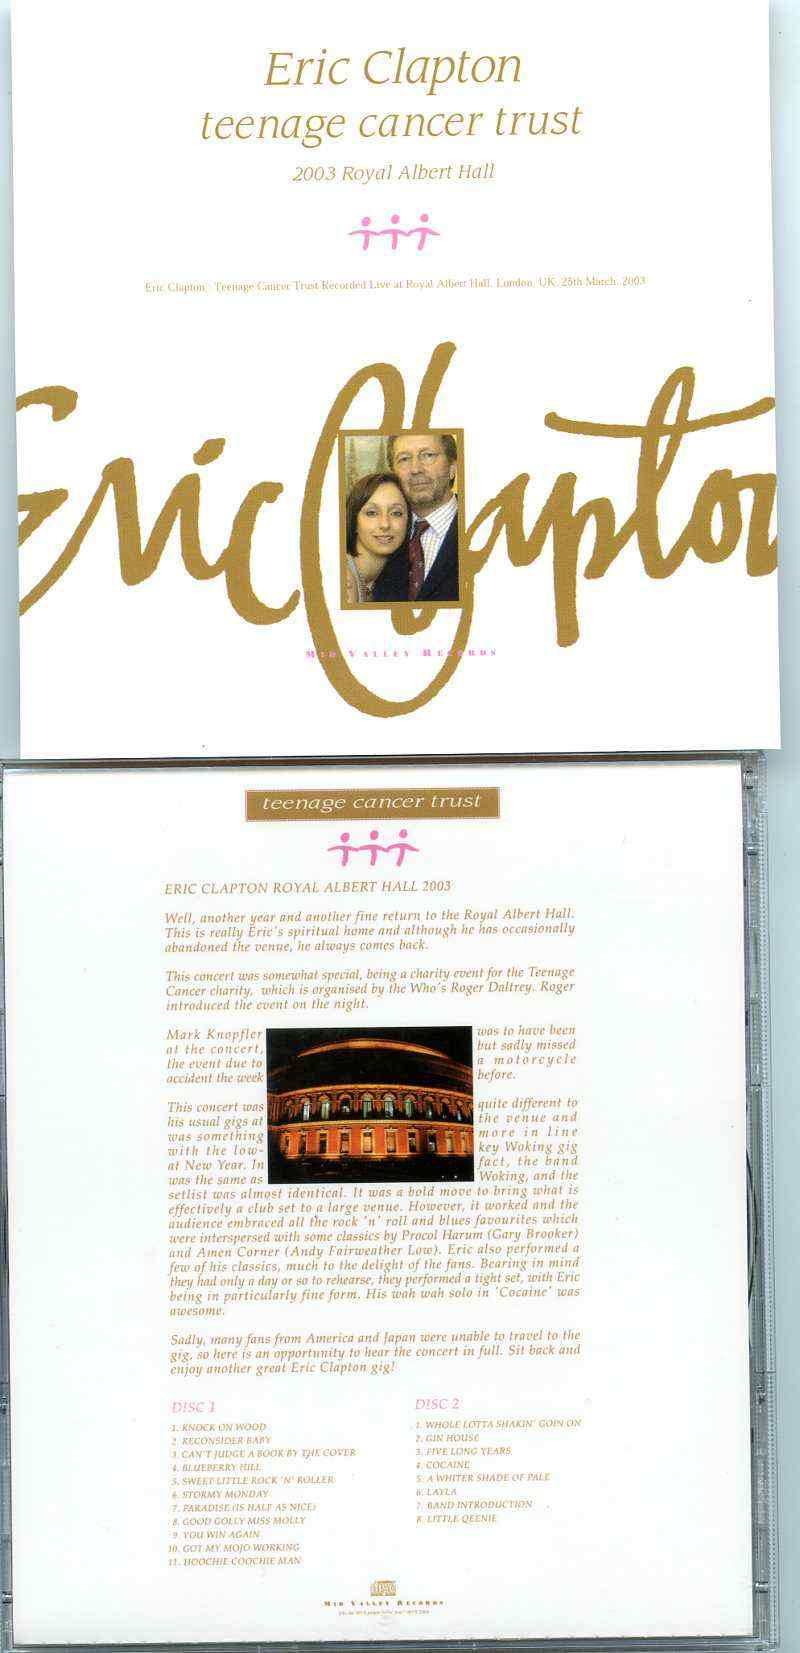 Eric Clapton
teenage cancer trust
2003 Royal Albert Hall
Eric Clapton. Teenage Cancer Trust Recorded Live at Royal Albert Hall, London, UK, 25th March, 2003
Eric Clapton
MID VALLEY RECORDS
teenage cancer trust
ERIC CLAPTON ROYAL ALBERT HALL 2003
Well, another year and another fine return to the Royal Albert Hall.
This is really Eric's spiritual home and although he has occasionally
abandoned the venue, he always comes back.
This concert was somewhat special, being a charity event for the Teenage
Cancer charity, which is organised by the Who's Roger Daltrey. Roger
introduced the event on the night.
Mark Knopfler was to have been
at the concert, but sadly missed
the event due to a motorcycle
accident the week before.
This concert was quite different to
his usual gigs at the venue and
was something more in line
with the low- key Woking gig
at New Year. In fact, the band
was the same as Woking, and the
setlist was almost identical. It was a bold move to bring what is
effectively a club set to a large venue. However, it worked and the
audience embraced all the rock 'n' roll and blues favourites which
were interspersed with some classics by Procol Harum (Gary Brooker)
and Amen Corner (Andy Fairweather Low). Eric also performed a
few of his classics, much to the delight of the fans. Bearing in mind
they had only a day or so to rehearse, they performed a tight set, with Eric
being in particularly fine form. His wah wah solo in 'Cocaine' was
awesome.
Sadly, many fans from America and Japan were unable to travel to the
gig, so here is an opportunity to hear the concert in full. Sit back and
enjoy another great Eric Clapton gig!
DISC 1
1. KNOCK ON WOOD
2. RECONSIDER BABY
3. CAN'T JUDGE A BOOK BY THE COVER
4. BLUEBERRY HILL
5. SWEET LITTLE ROCK 'N' ROLLER
6. STORMY MONDAY
7. PARADISE (IS HALF AS NICE)
8. GOOD GOLLY MISS MOLLY
9. YOU WIN AGAIN
10. GOT MY MOJO WORKING
11. HOOCHIE COOCHIE MAN
DISC 2
1. WHOLE LOTTA SHAKIN' GOIN ON
2. GIN HOUSE
3. FIVE LONG YEARS
4. COCAINE
5. A WHITER SHADE OF PALE
6. LAYLA
7. BAND INTRODUCTION
8. LITTLE QEENIE
MID VALLEY RECORDS